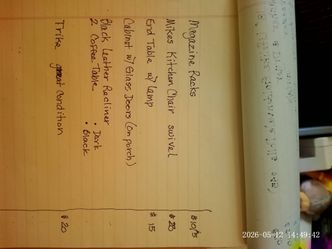 Magazine Racks $10/5
Mikes Kitchen Chair swivel $25
End Table w/ Lamp $15
Cabinet w/ Glass Doors (on porch)
Black Leather Recliner • Dark
2 Coffee Table • Black
Trike great condition $20
2026-05-12 14:49:42